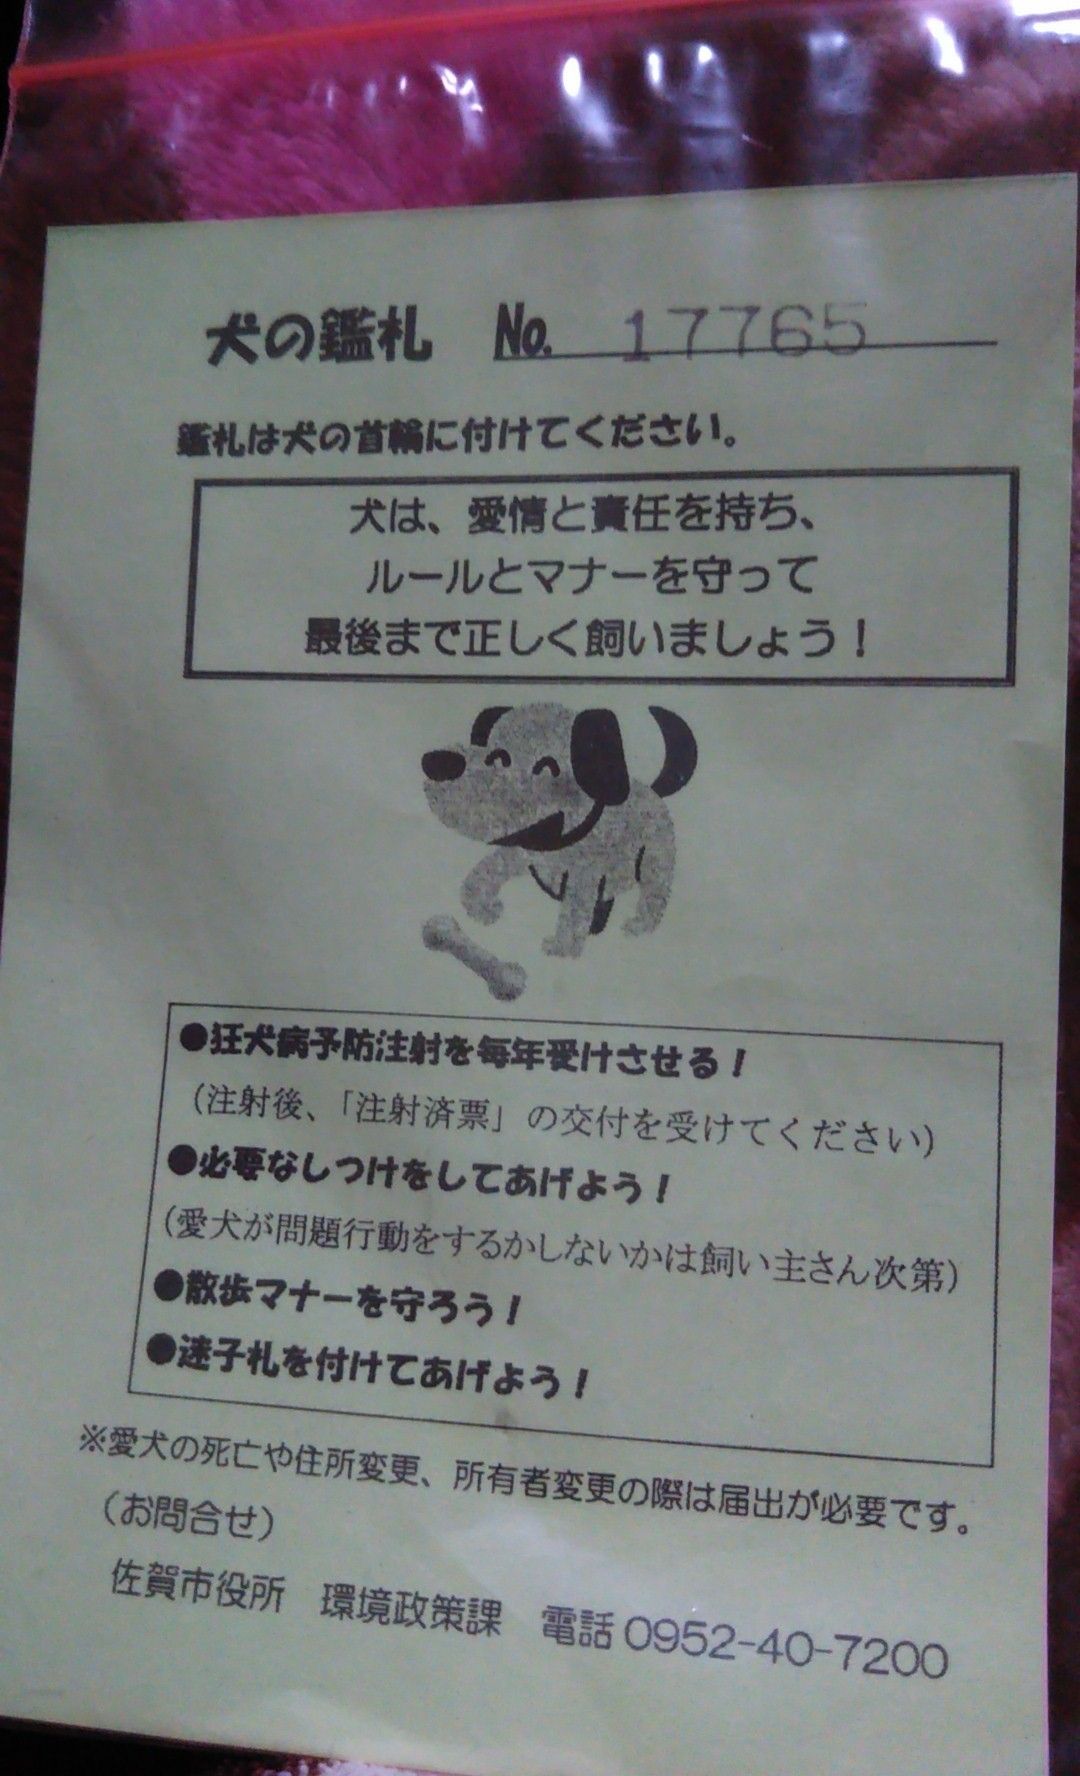 犬の鑑札 No. 17765
鑑札は犬の首輪に付けてください。
犬は、愛情と責任を持ち、
ルールとマナーを守って
最後まで正しく飼いましょう！
●狂犬病予防注射を毎年受けさせる！
（注射後、「注射済票」の交付を受けてください）
●必要なしつけをしてあげよう！
（愛犬が問題行動をするかしないかは飼い主さん次第）
●散歩マナーを守ろう！
●迷子札を付けてあげよう！
※愛犬の死亡や住所変更、所有者変更の際は届出が必要です。
（お問合せ）
佐賀市役所　環境政策課　電話 0952-40-7200